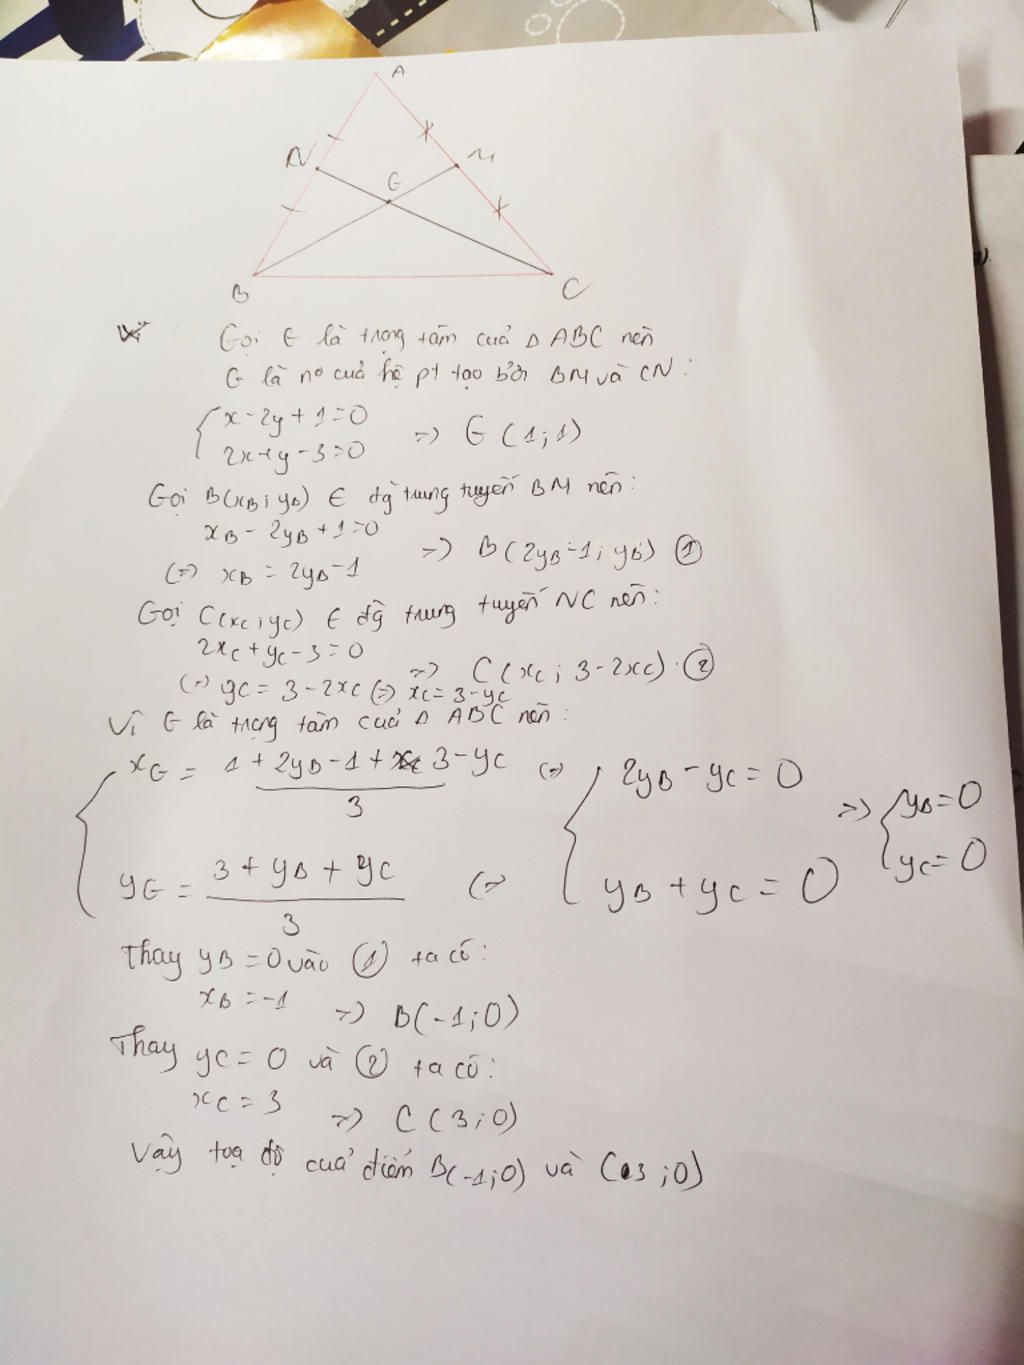 A
N
M
G
B
C
Gọi G là trọng tâm của Δ ABC nên
G là no cuả hệ pt tạo bởi BM và CN:
{ x - 2y + 1 = 0
2x + y - 3 = 0 => G (1; 1)
Gọi B(xB; yB) ∈ đg trung tuyến BM nên:
xB - 2yB + 1 = 0
(=) xB = 2yB - 1 => B(2yB - 1; yB) ①
Gọi C(xC; yC) ∈ đg trung tuyến NC nên:
2xC + yC - 3 = 0
(=) yC = 3 - 2xC (=) xC = 3 - yC => C(xC; 3 - 2xC) ②
Vì G là trọng tâm cuả Δ ABC nên:
{ xG = (1 + 2yB - 1 + 3 - yC) / 3 (=) { 2yB - yC = 0 => { yB = 0
yG = (3 + yB + yC) / 3 (=) yB + yC = 0 yC = 0
Thay yB = 0 vào ① ta có:
xB = -1 => B(-1; 0)
Thay yC = 0 và ② ta có:
xC = 3 => C (3; 0)
Vậy toạ độ cuả điểm B(-1; 0) và C(3; 0)